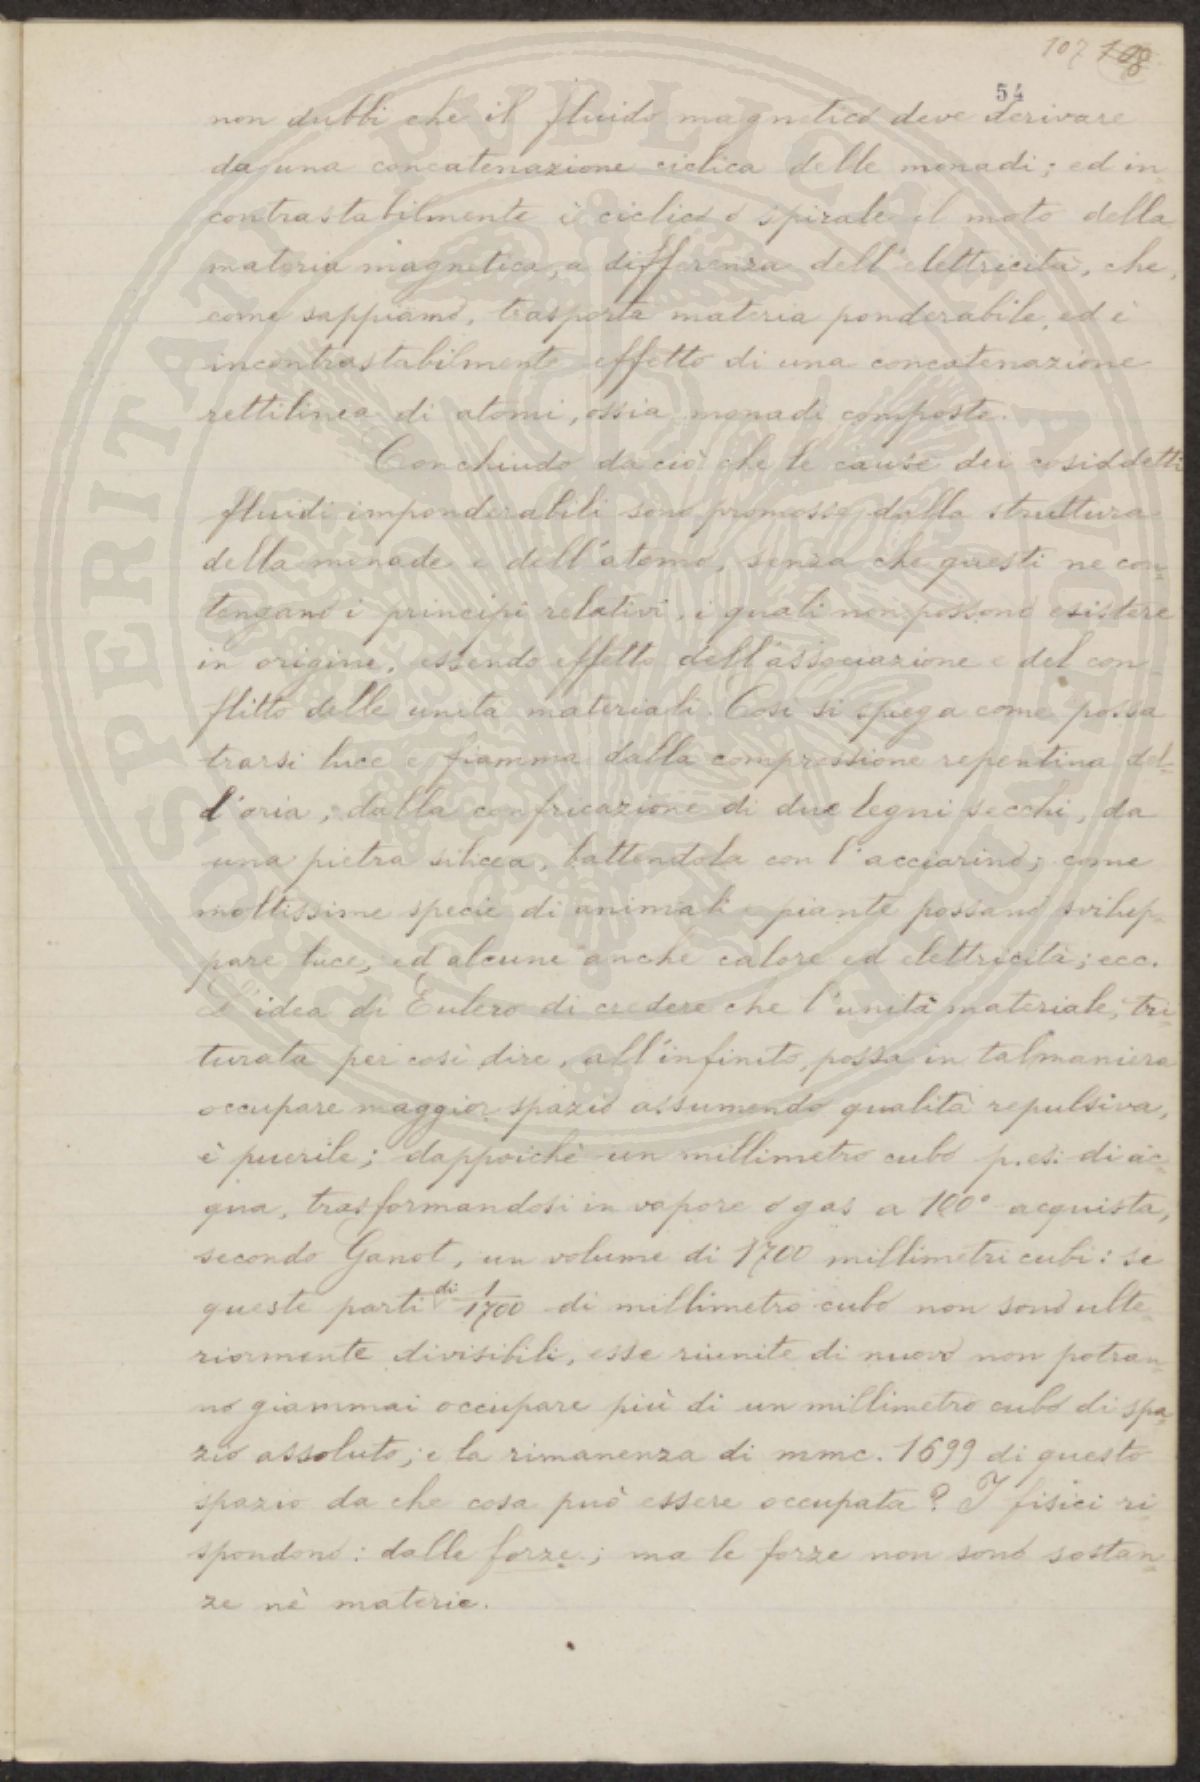 107 108
54
non dubbi che il fluido magnetico deve derivare
da una concatenazione ciclica delle monadi; ed in-
contrastabilmente è ciclico o spirale il moto della
materia magnetica, a differenza dell'elettricità, che,
come sappiamo, trasporta materia ponderabile, ed è
incontrastabilmente effetto di una concatenazione
rettilinea di atomi, ossia monadi composte.
Conchiudo da ciò che le cause dei cosiddetti
fluidi imponderabili sono promosse dalla struttura
della monade e dell'atomo, senza che questi ne con-
tengano i principi relativi, i quali non possono esistere
in origine, essendo effetto dell'associazione e del con
flitto delle unità materiali. Così si spiega come possa
trarsi luce e fiamma dalla compressione repentina del-
l'aria, dalla confricazione di due legni secchi, da
una pietra silicea, battendola con l'acciarino; come
moltissime specie di animali e piante possano svilup-
pare luce, ed alcune anche calore ed elettricità; ecc.
L'idea di Eulero di credere che l'unità materiale, tri-
turata per così dire, all'infinito, possa in tal maniera
occupare maggior spazio assumendo qualità repulsiva,
è puerile; dappoichè un millimetro cubo p. es. di ac-
qua, trasformandosi in vapore o gas a 100° acquista,
secondo Ganot, un volume di 1700 millimetri cubi: se
queste parti di 1/1700 di millimetro cubo non sono ulte-
riormente divisibili, esse riunite di nuovo non potran-
no giammai occupare più di un millimetro cubo di spa-
zio assoluto; e la rimanenza di mmc. 1699 di questo
spazio da che cosa può essere occupata? I fisici ri-
spondono: dalle forze; ma le forze non sono sostan-
ze nè materie.
PROSPERITATI PUBLICAE